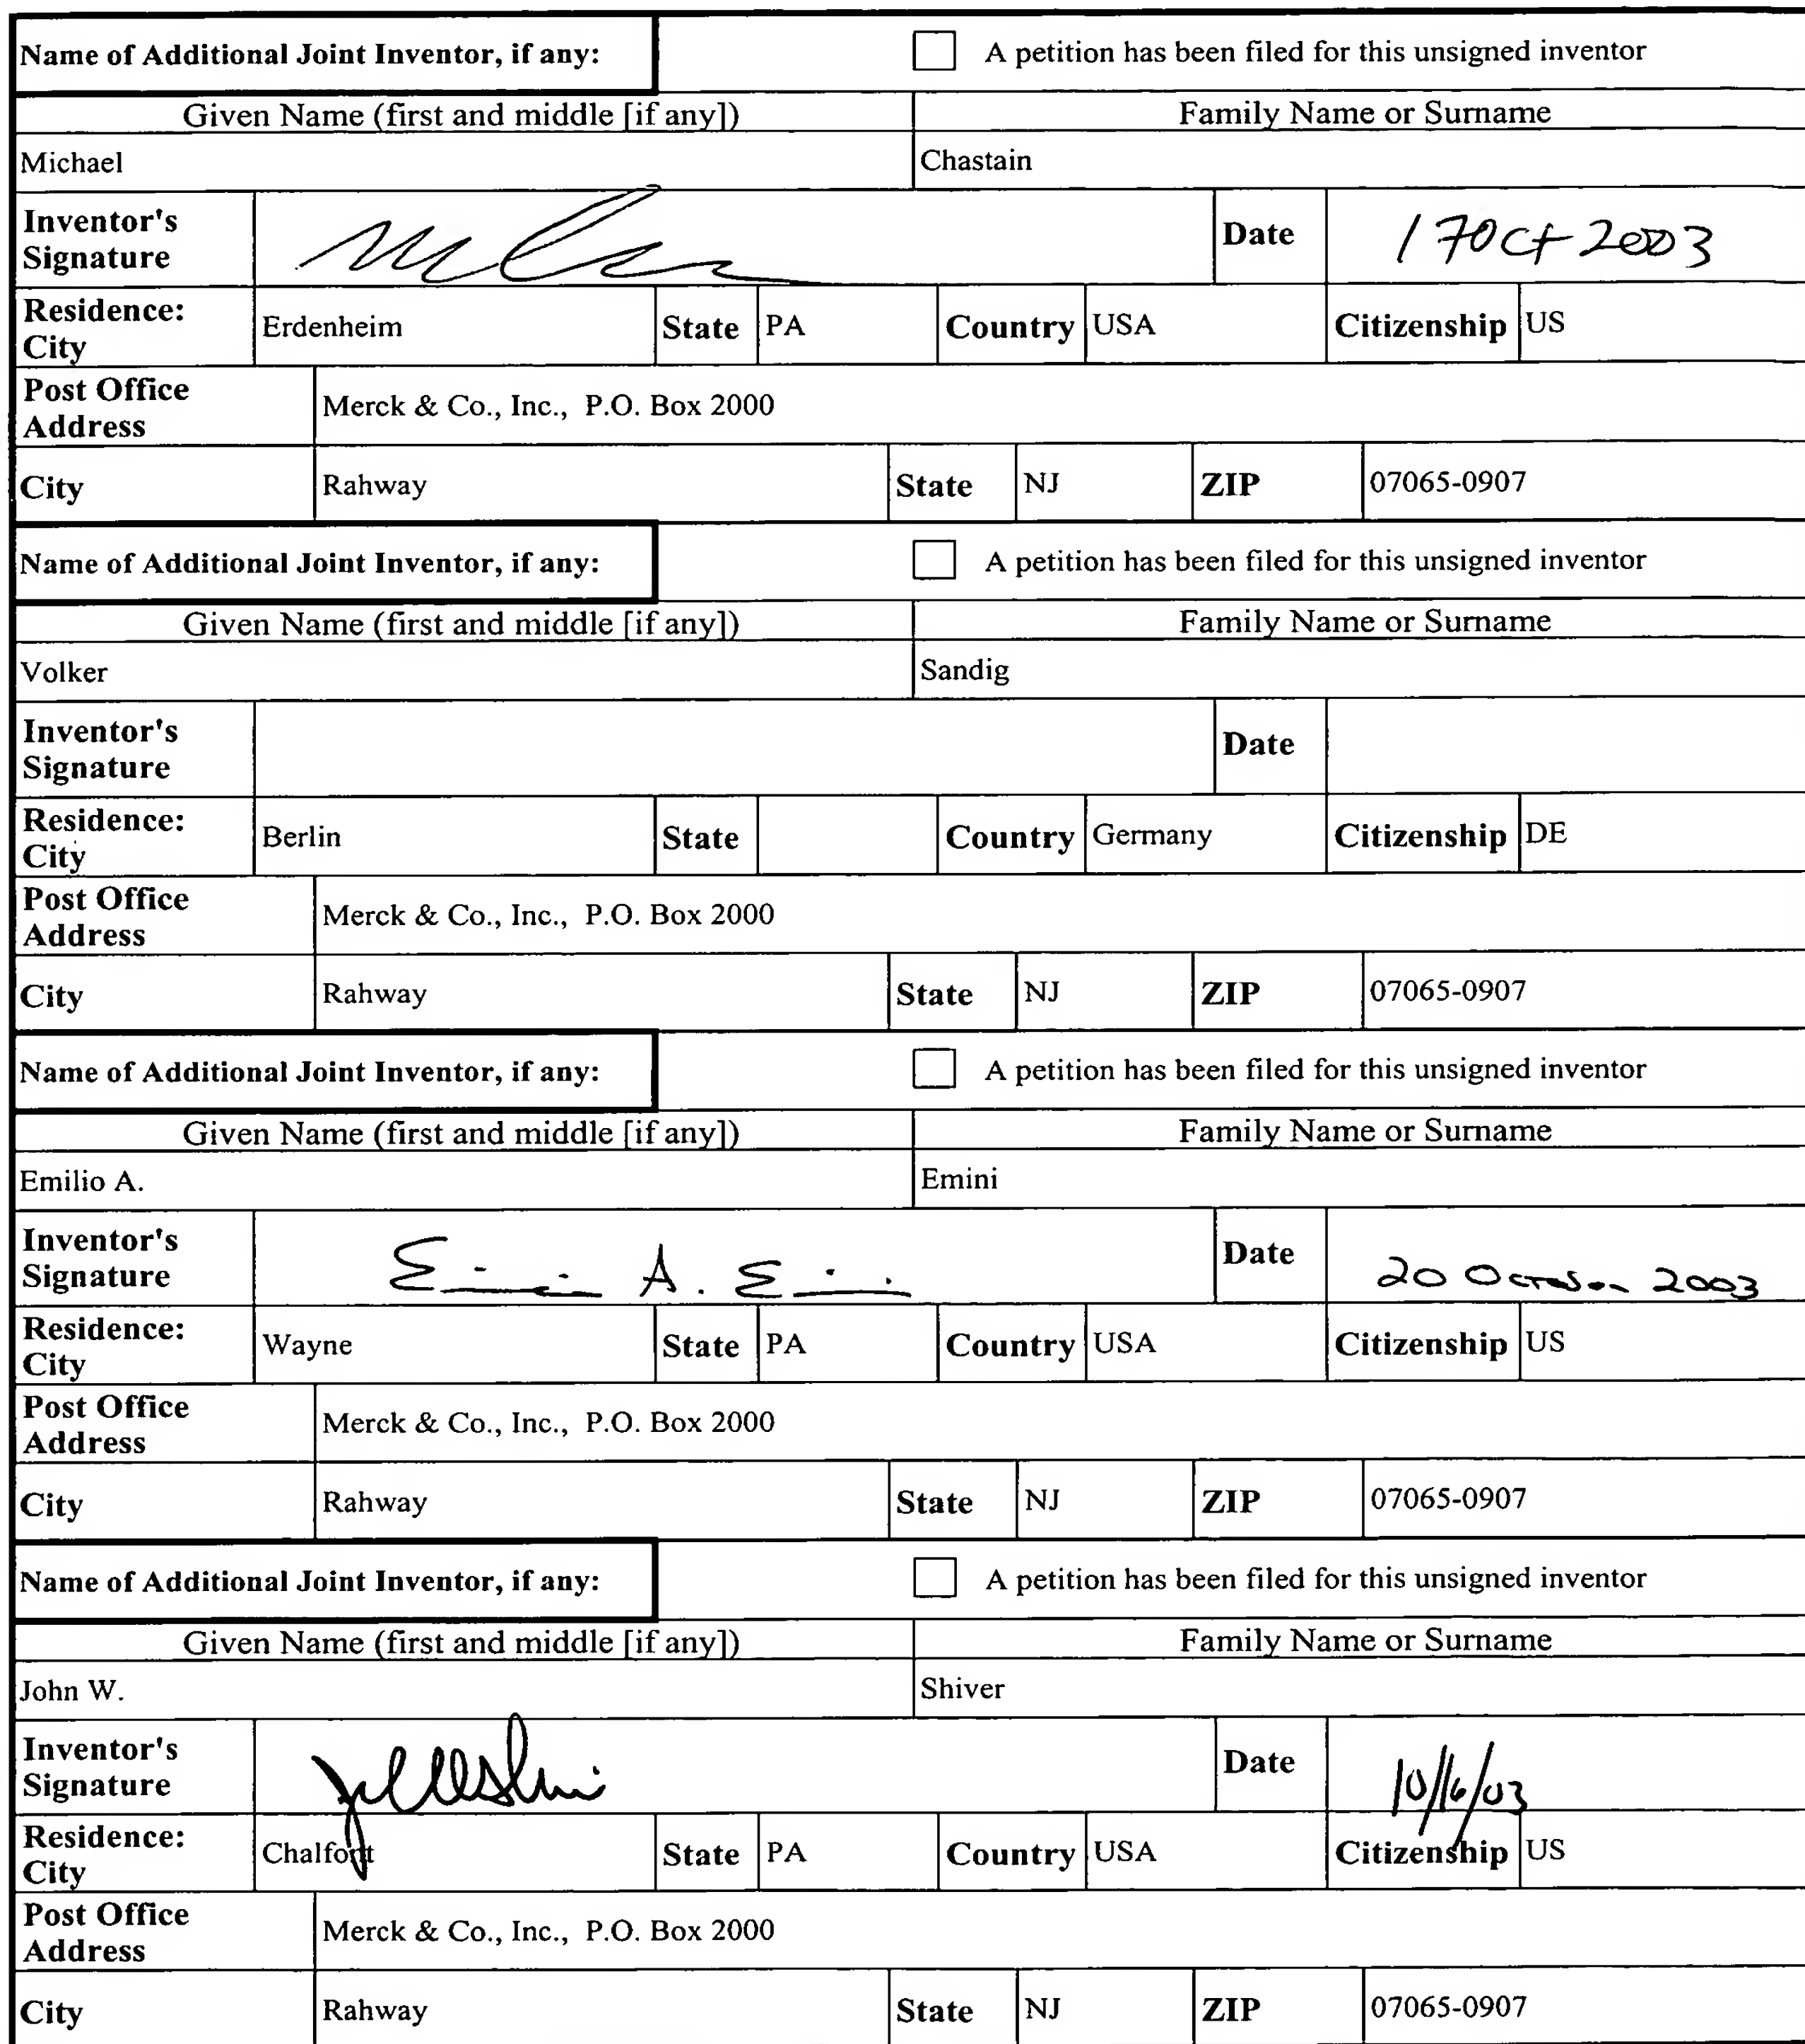 Name of Additional Joint Inventor, if any: A petition has been filed for this unsigned inventor
Given Name (first and middle [if any]) Family Name or Surname
Michael Chastain
Inventor's Signature Date 17 Oct 2003
Residence: City Erdenheim State PA Country USA Citizenship US
Post Office Address Merck & Co., Inc., P.O. Box 2000
City Rahway State NJ ZIP 07065-0907
Name of Additional Joint Inventor, if any: A petition has been filed for this unsigned inventor
Given Name (first and middle [if any]) Family Name or Surname
Volker Sandig
Inventor's Signature Date
Residence: City Berlin State Country Germany Citizenship DE
Post Office Address Merck & Co., Inc., P.O. Box 2000
City Rahway State NJ ZIP 07065-0907
Name of Additional Joint Inventor, if any: A petition has been filed for this unsigned inventor
Given Name (first and middle [if any]) Family Name or Surname
Emilio A. Emini
Inventor's Signature Date 20 October 2003
Residence: City Wayne State PA Country USA Citizenship US
Post Office Address Merck & Co., Inc., P.O. Box 2000
City Rahway State NJ ZIP 07065-0907
Name of Additional Joint Inventor, if any: A petition has been filed for this unsigned inventor
Given Name (first and middle [if any]) Family Name or Surname
John W. Shiver
Inventor's Signature Date 10/16/03
Residence: City Chalfont State PA Country USA Citizenship US
Post Office Address Merck & Co., Inc., P.O. Box 2000
City Rahway State NJ ZIP 07065-0907